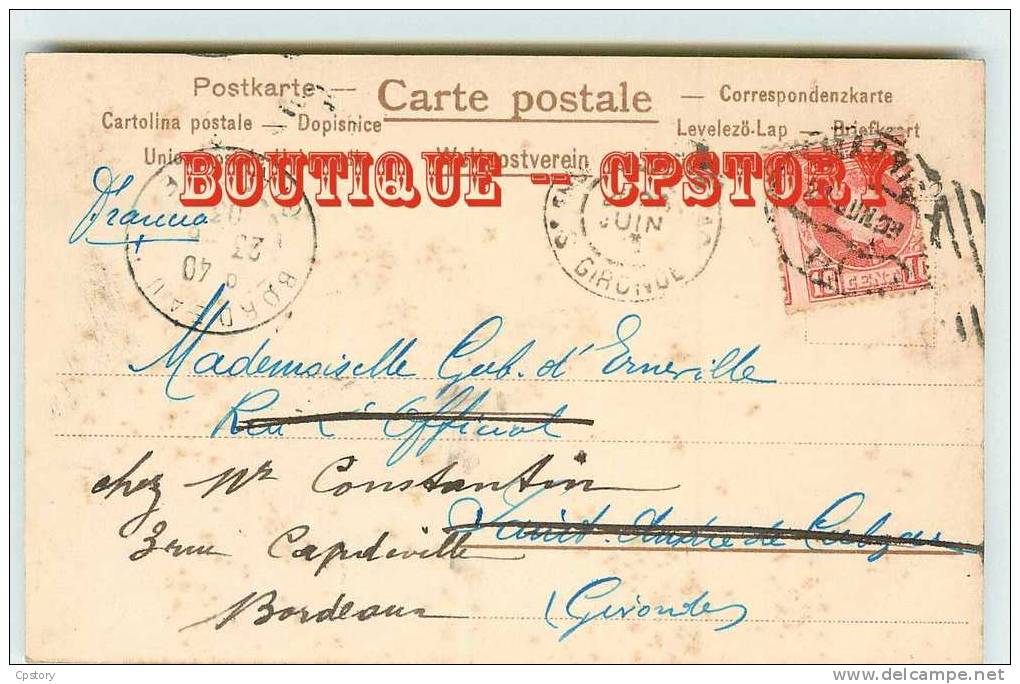 Postkarte — Carte postale — Correspondenzkarte
Cartolina postale — Dopisnice
Levelező-Lap — Briefkaart
Weltpostverein
BOUTIQUE -- CPSTORY
Francia
BORDEAUX
23
8 40
JUIN
GIRONDE
MADRID
10 CENT
Mademoiselle Gab. d'Erneville
Rue L'Official
chez Mr Constantin
Saint-André de Cubzac
3 rue Capdeville
Bordeaux (Gironde)
Cpstory
www.delcampe.net